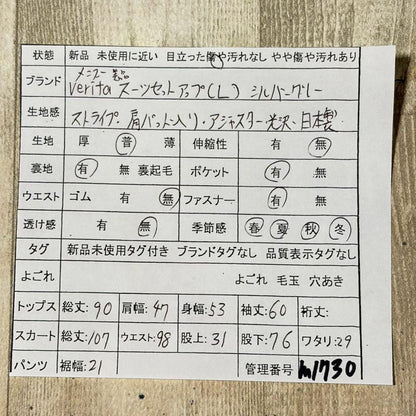 状態 新品 未使用に近い 目立った傷や汚れなし やや傷や汚れあり
メンズ
ブランド Verita スーツセットアップ(L) シルバーグレー
生地感 ストライプ、肩パット入り・アジャスター 光沢、日本製
生地 厚 普 薄 伸縮性 有 無
裏地 有 無 裏起毛 ポケット 有 無
ウエスト ゴム 有 無 ファスナー 有 無
透け感 有 無 季節感 春 夏 秋 冬
タグ 新品未使用タグ付き ブランドタグなし 品質表示タグなし
よごれ よごれ 毛玉 穴あき
トップス 総丈:90 肩幅:47 身幅:53 袖丈:60 裄丈:
スカート 総丈:107 ウエスト:98 股上:31 股下:76 ワタリ:29
パンツ 裾幅:21 管理番号 m1730